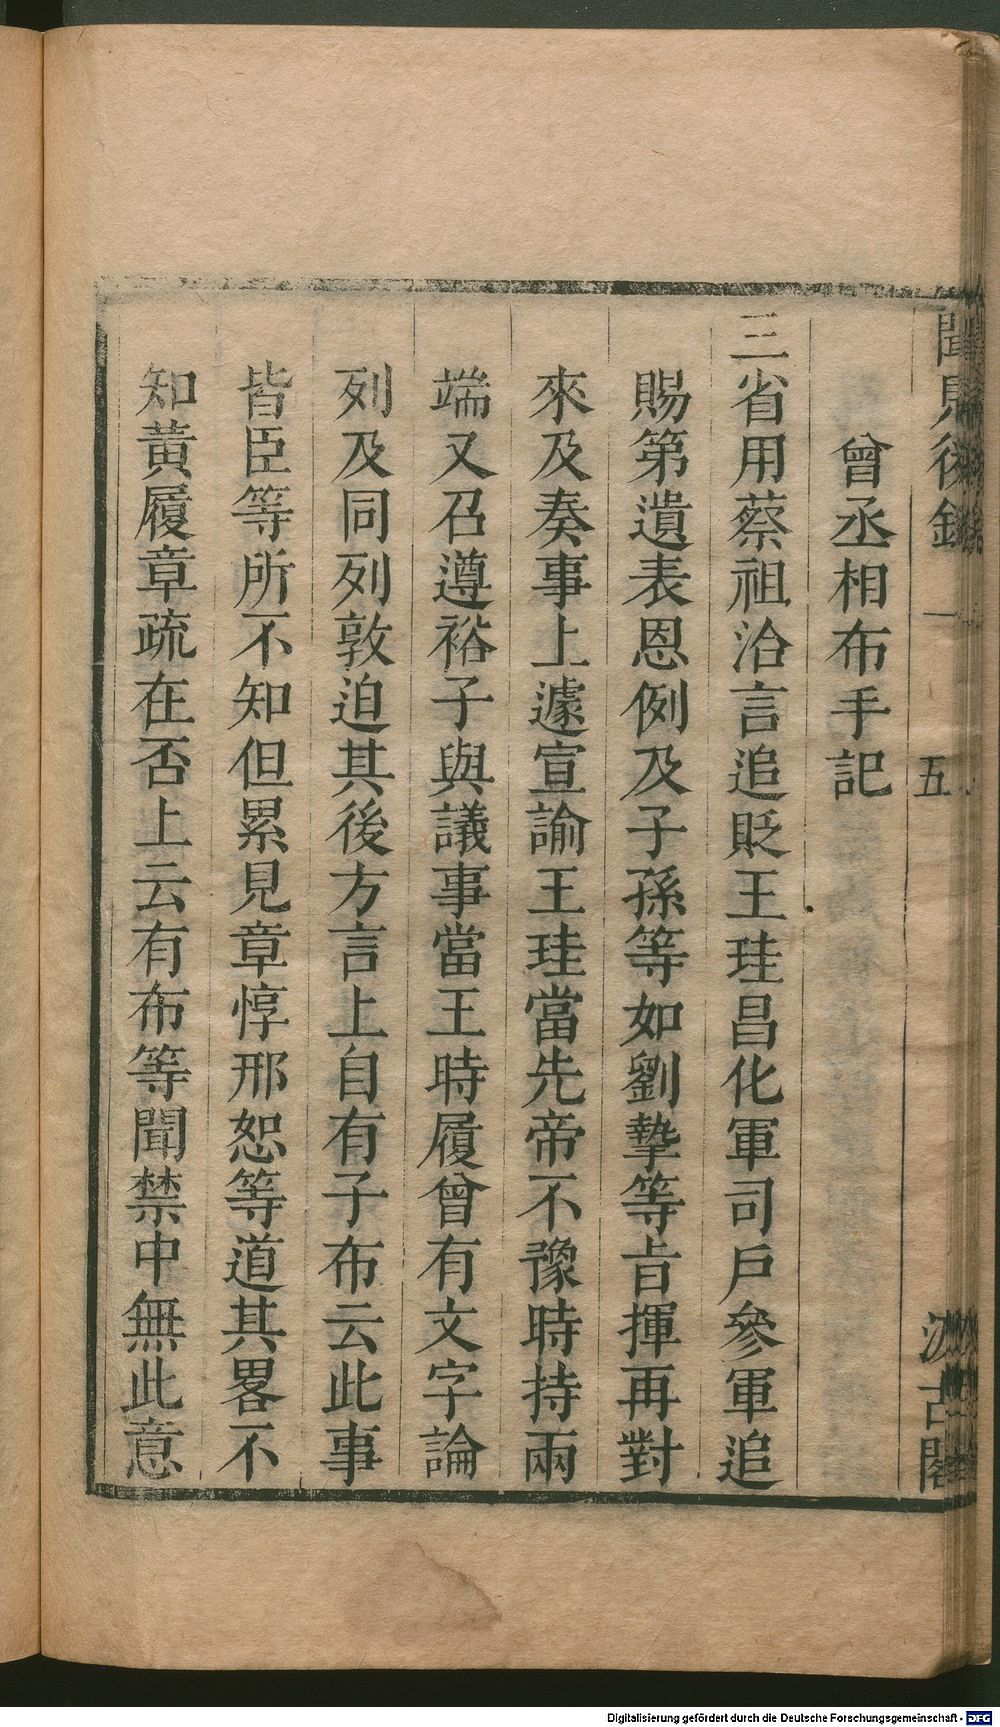 聞見後錄 一 五 汲古閣
曾丞相布手記
三省用蔡祖洽言追貶王珪昌化軍司戶參軍追
賜第遺表恩例及子孫等如劉摯等㫖揮再對
來及奏事上遽宣諭王珪當先帝不豫時持兩
端又召遵裕子與議事當王時履曾有文字論
列及同列敦迫其後方言上自有子布云此事
皆臣等所不知但累見章惇邢恕等道其畧不
知黃履章疏在否上云有布等聞禁中無此意
Digitalisierung gefördert durch die Deutsche Forschungsgemeinschaft - DFG